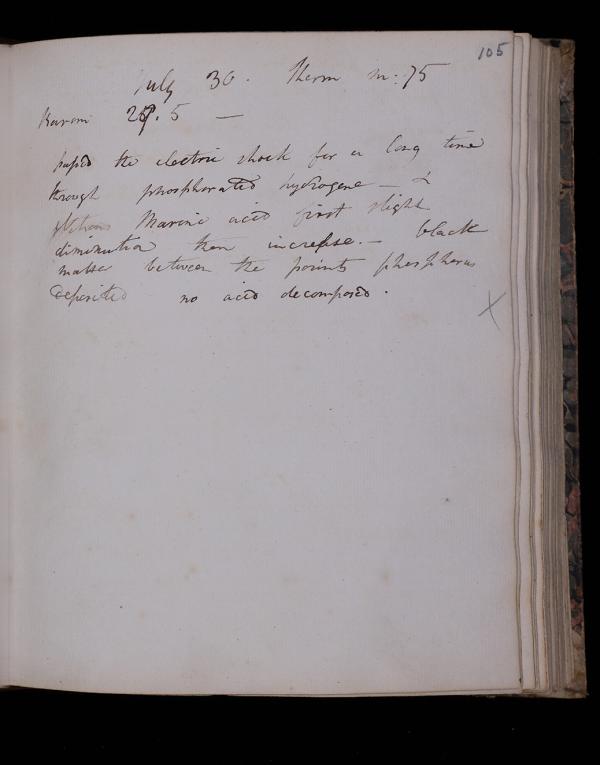 105
July 30. Therm m: 75
Barom 29.5 —
passed the electric shock for a long time
through phosphorated hydrogene — &
Marine acid first slight
diminution then increase. — black
matter between the points phosphorus
deposited no acid decomposed.
X